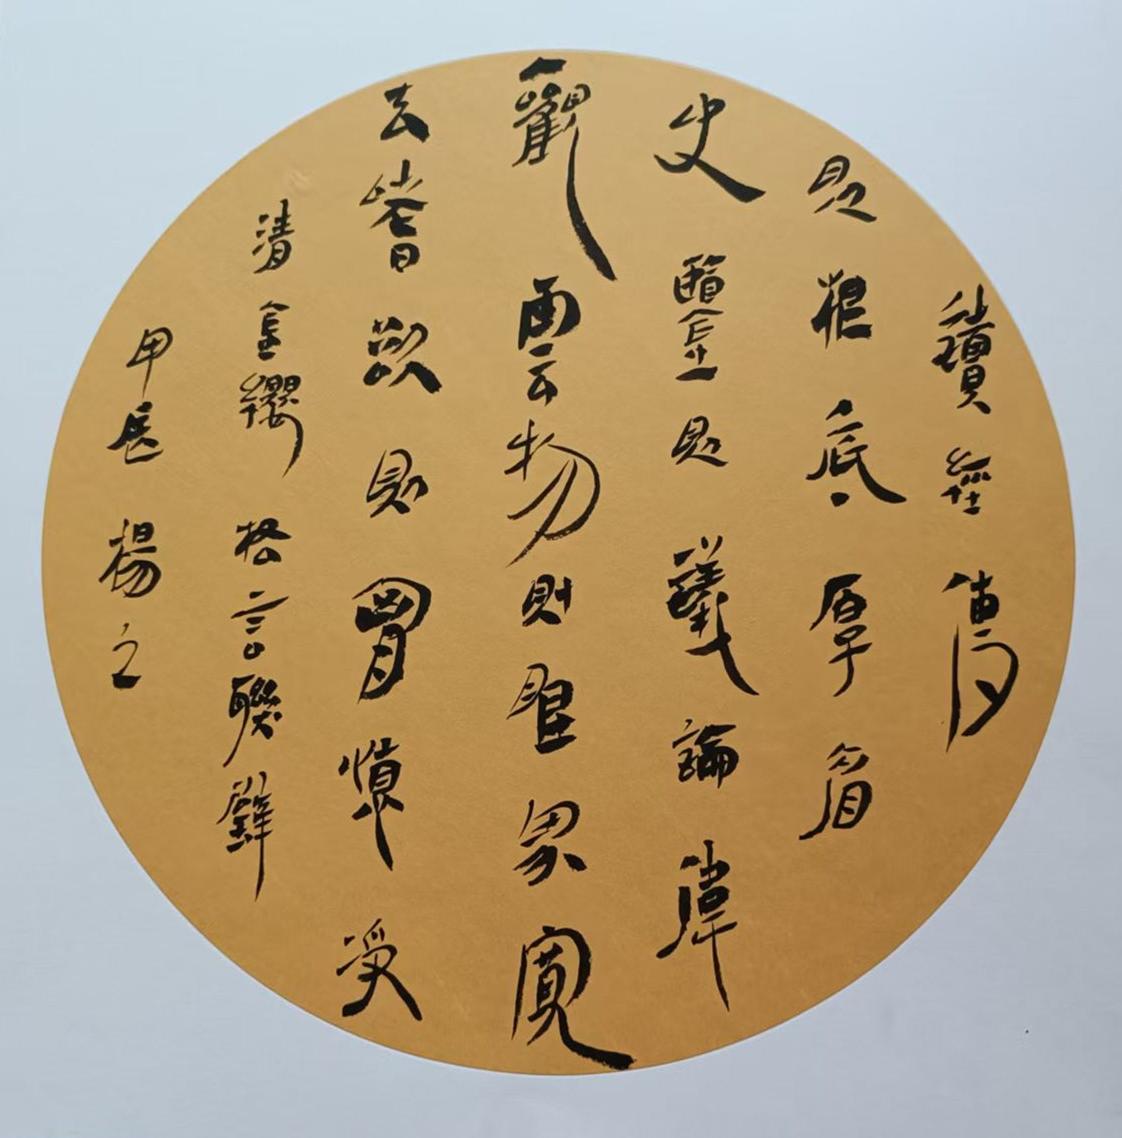 讀經傳
則根底厚看
史鑒則議論偉
觀雲物則眼界寬
去嗜欲則胷懷淨
清金纓格言聯璧
甲辰楊之